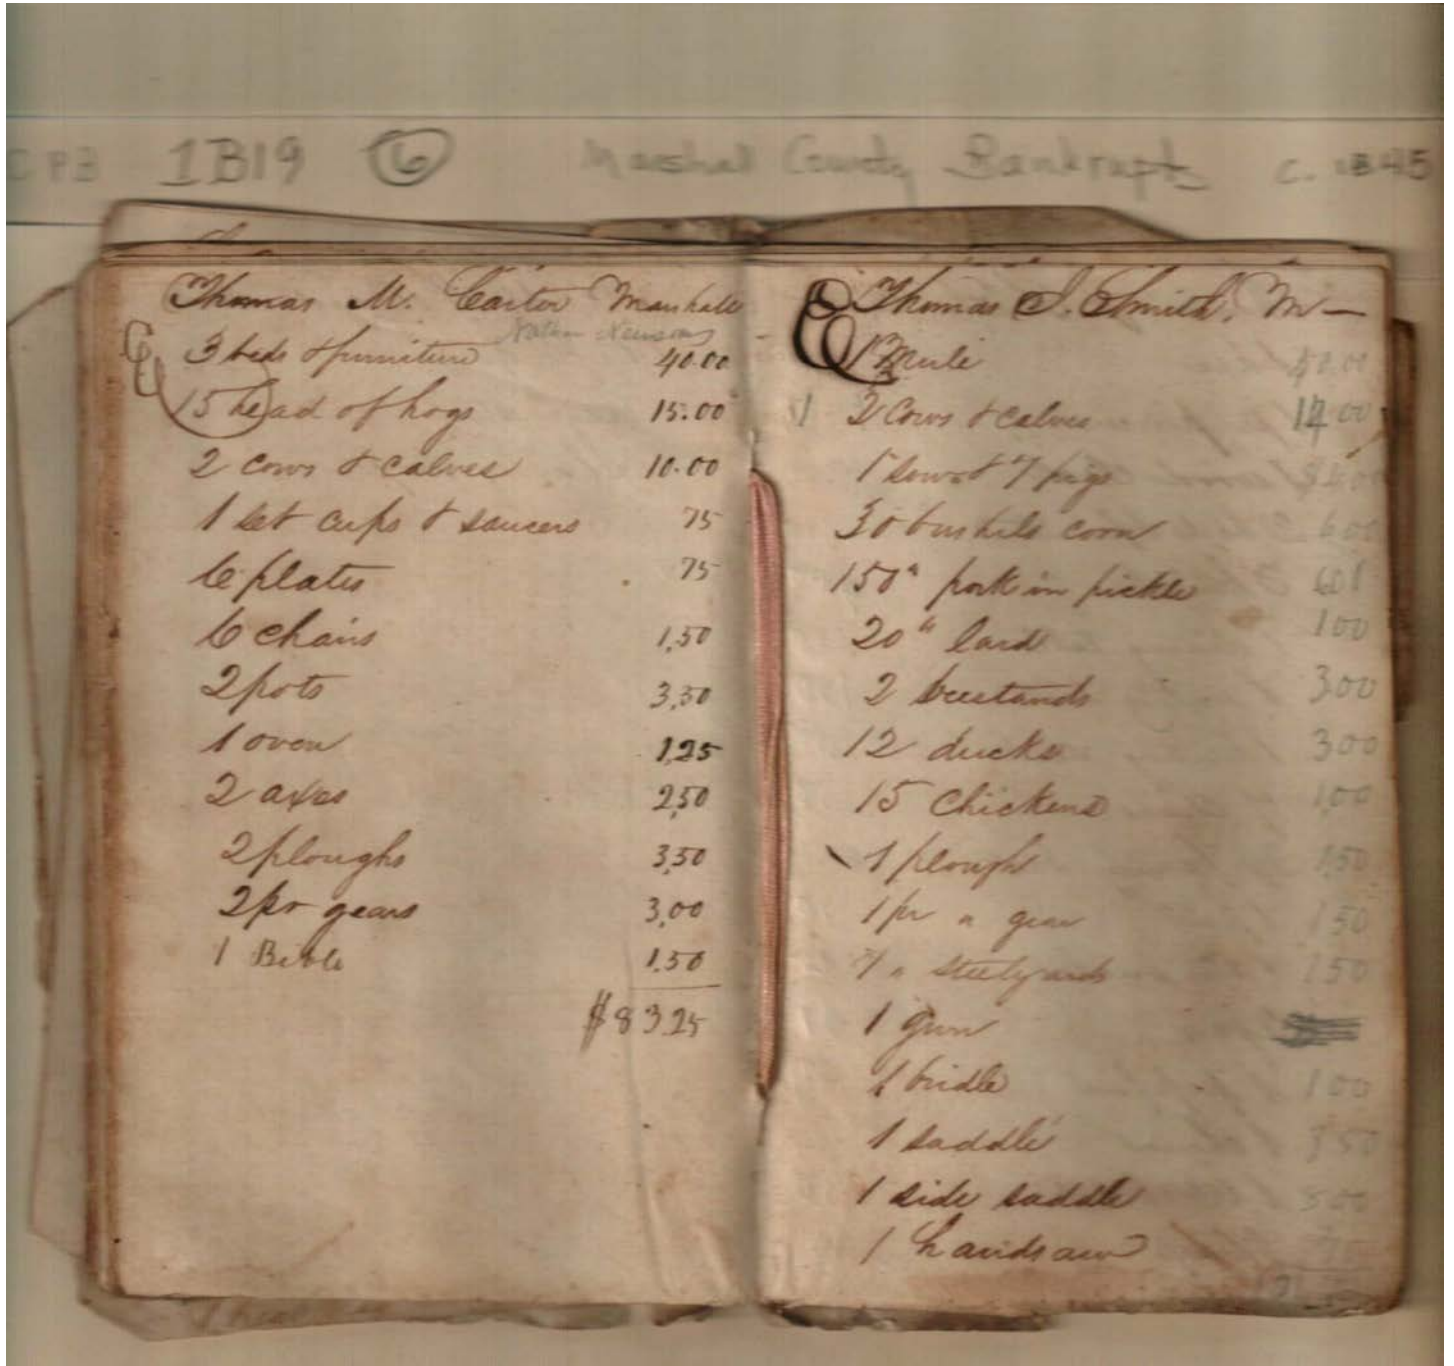 CPB 1B19 6 Marshal County Bankrupts c. 1845
Thomas M. Carter Marshall
Nathan Newsom
3 beds & furniture 40.00
15 head of hogs 15.00
2 cows & calves 10.00
1 set cups & saucers 75
6 plates 75
6 chairs 1,50
2 pots 3,50
1 oven 1,25
2 axes 2,50
2 ploughs 3,50
2 pr gears 3,00
1 Bible 1.50
$83.25
Thomas J. Smith, M—
1 Mule
1 2 Cows & calves 00
1 sow & 7 pigs
30 bushels corn 600
150 " pork in pickle
20 " lard 100
2 beestands 300
12 ducks 300
15 chickens 1,00
1 plough 1,50
1 pr " gear 150
1 " steelyards 150
1 gun
1 bridle 100
1 saddle
1 side saddle
1 handsaw